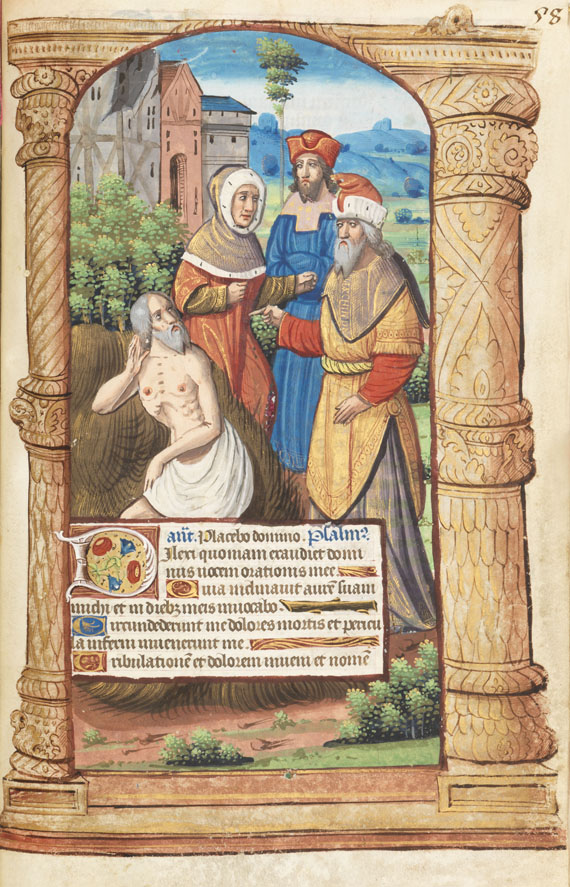 58
añt. Placebo domino. Psalm9.
Dilexi quoniam exaudiet domi
nus uocem orationis mee
Quia inclinauit aurẽ suam
michi et in dieb3 meis inuocabo
Circundederunt me dolores mortis et pericu
la inferni inuenerunt me.
Tribulationẽ et dolorem inueni et nomẽ